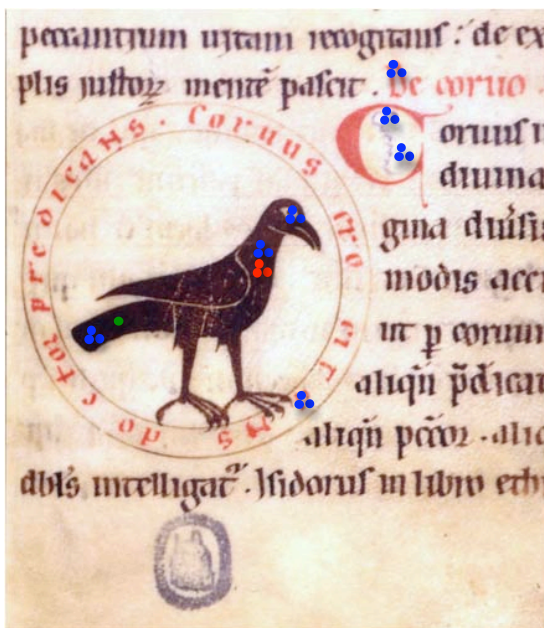 peccantium uitam recogitans : de ex
plis iustoꝝ mentē pascit . De coruo .
Coruus
diuina
gina diuisis
modis acci
ut ꝑ coruum
aliqñ p̄dicat
aliqñ pccor . alic
dbis intelligat᷑ . Isidorus in libro eth
Coruus ero
doctor predicans .